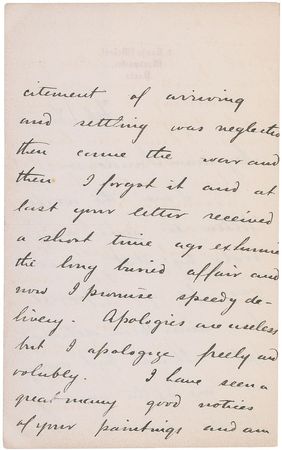 citement of arriving
and settling was neglected
then came the war and
then I forgot it and at
last your letter received
a short time ago exhumed
the long buried affair and
now I promise speedy de-
livery. Apologies are useless
but I apologize freely and
volubly. I have seen a
great many good notices
of your paintings and am